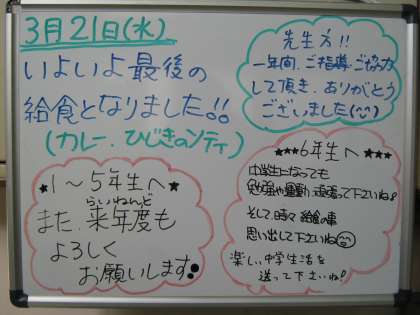 3月21日(水)
いよいよ最後の
給食となりました!!
(カレー、ひじきのソティ)
先生方!!
一年間、ご指導、ご協力
して頂き、ありがとう
ございました(^^)
★1〜5年生へ★
らいねんど
また、来年度も
よろしく
お願いします
★★★6年生へ★★★
中学生になっても
勉強や運動、頑張って下さいね!
そして、時々給食の事
思い出して下さいね
楽しい中学生活を
送って下さいね!